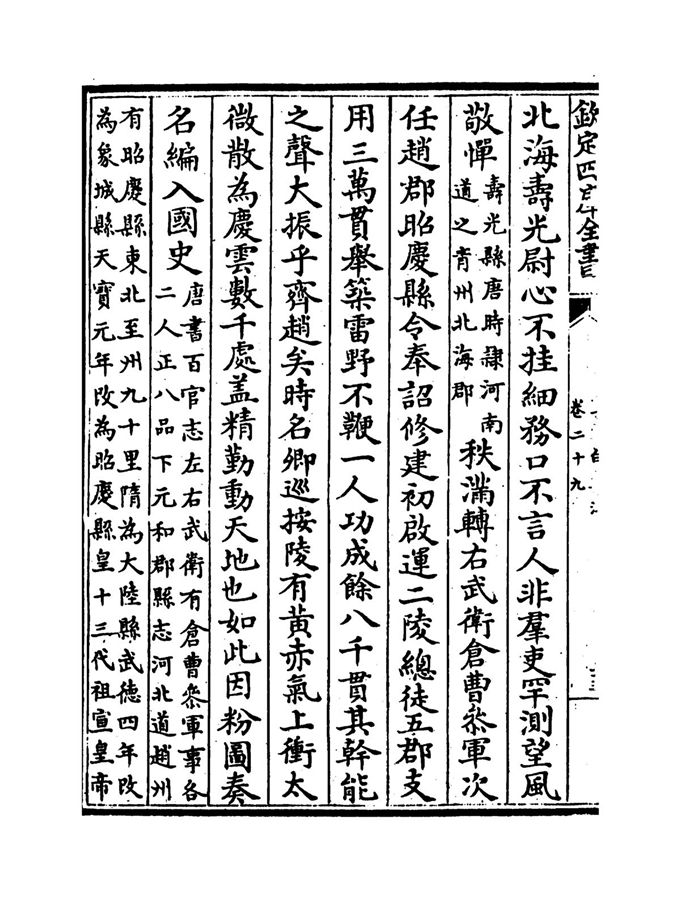 欽定四庫全書
卷二十九
北海壽光尉心不挂細務口不言人非羣吏罕測望風
敬憚壽光縣唐時隸河南道之青州北海郡秩滿轉右武衛倉曹叅軍次
任趙郡昭慶縣令奉詔修建初啟運二陵總徒五郡支
用三萬貫舉築雷野不鞭一人功成餘八千貫其幹能
之聲大振乎齊趙矣時名卿巡按陵有黃赤氣上衝太
微散為慶雲數千處盖精勤動天地也如此因粉圖奏
名編入國史唐書百官志左右武衛有倉曹叅軍事各二人正八品下元和郡縣志河北道趙州
有昭慶縣東北至州九十里隋為大陸縣武德四年改為象城縣天寶元年改為昭慶縣皇十三代祖宣皇帝